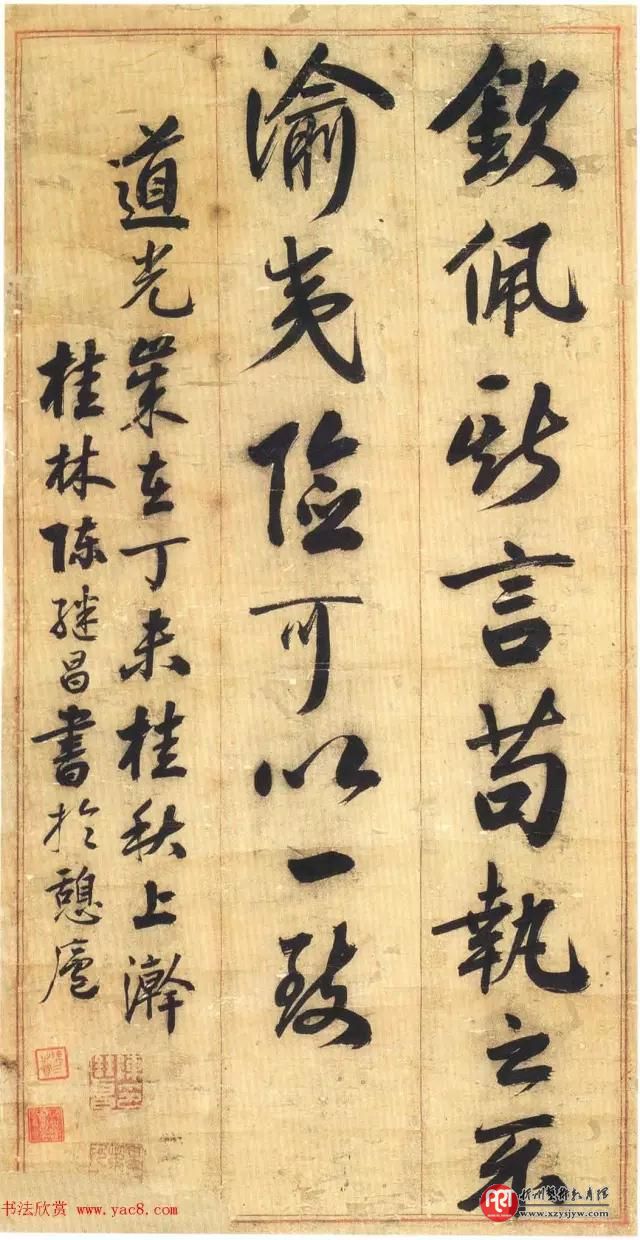 欽佩斯言苟執之不
渝夷險可以一致
道光歲在丁未桂秋上澣
桂林陳繼昌書於憩廬
书法欣赏 www.yac8.com
www.xzysjyw.com